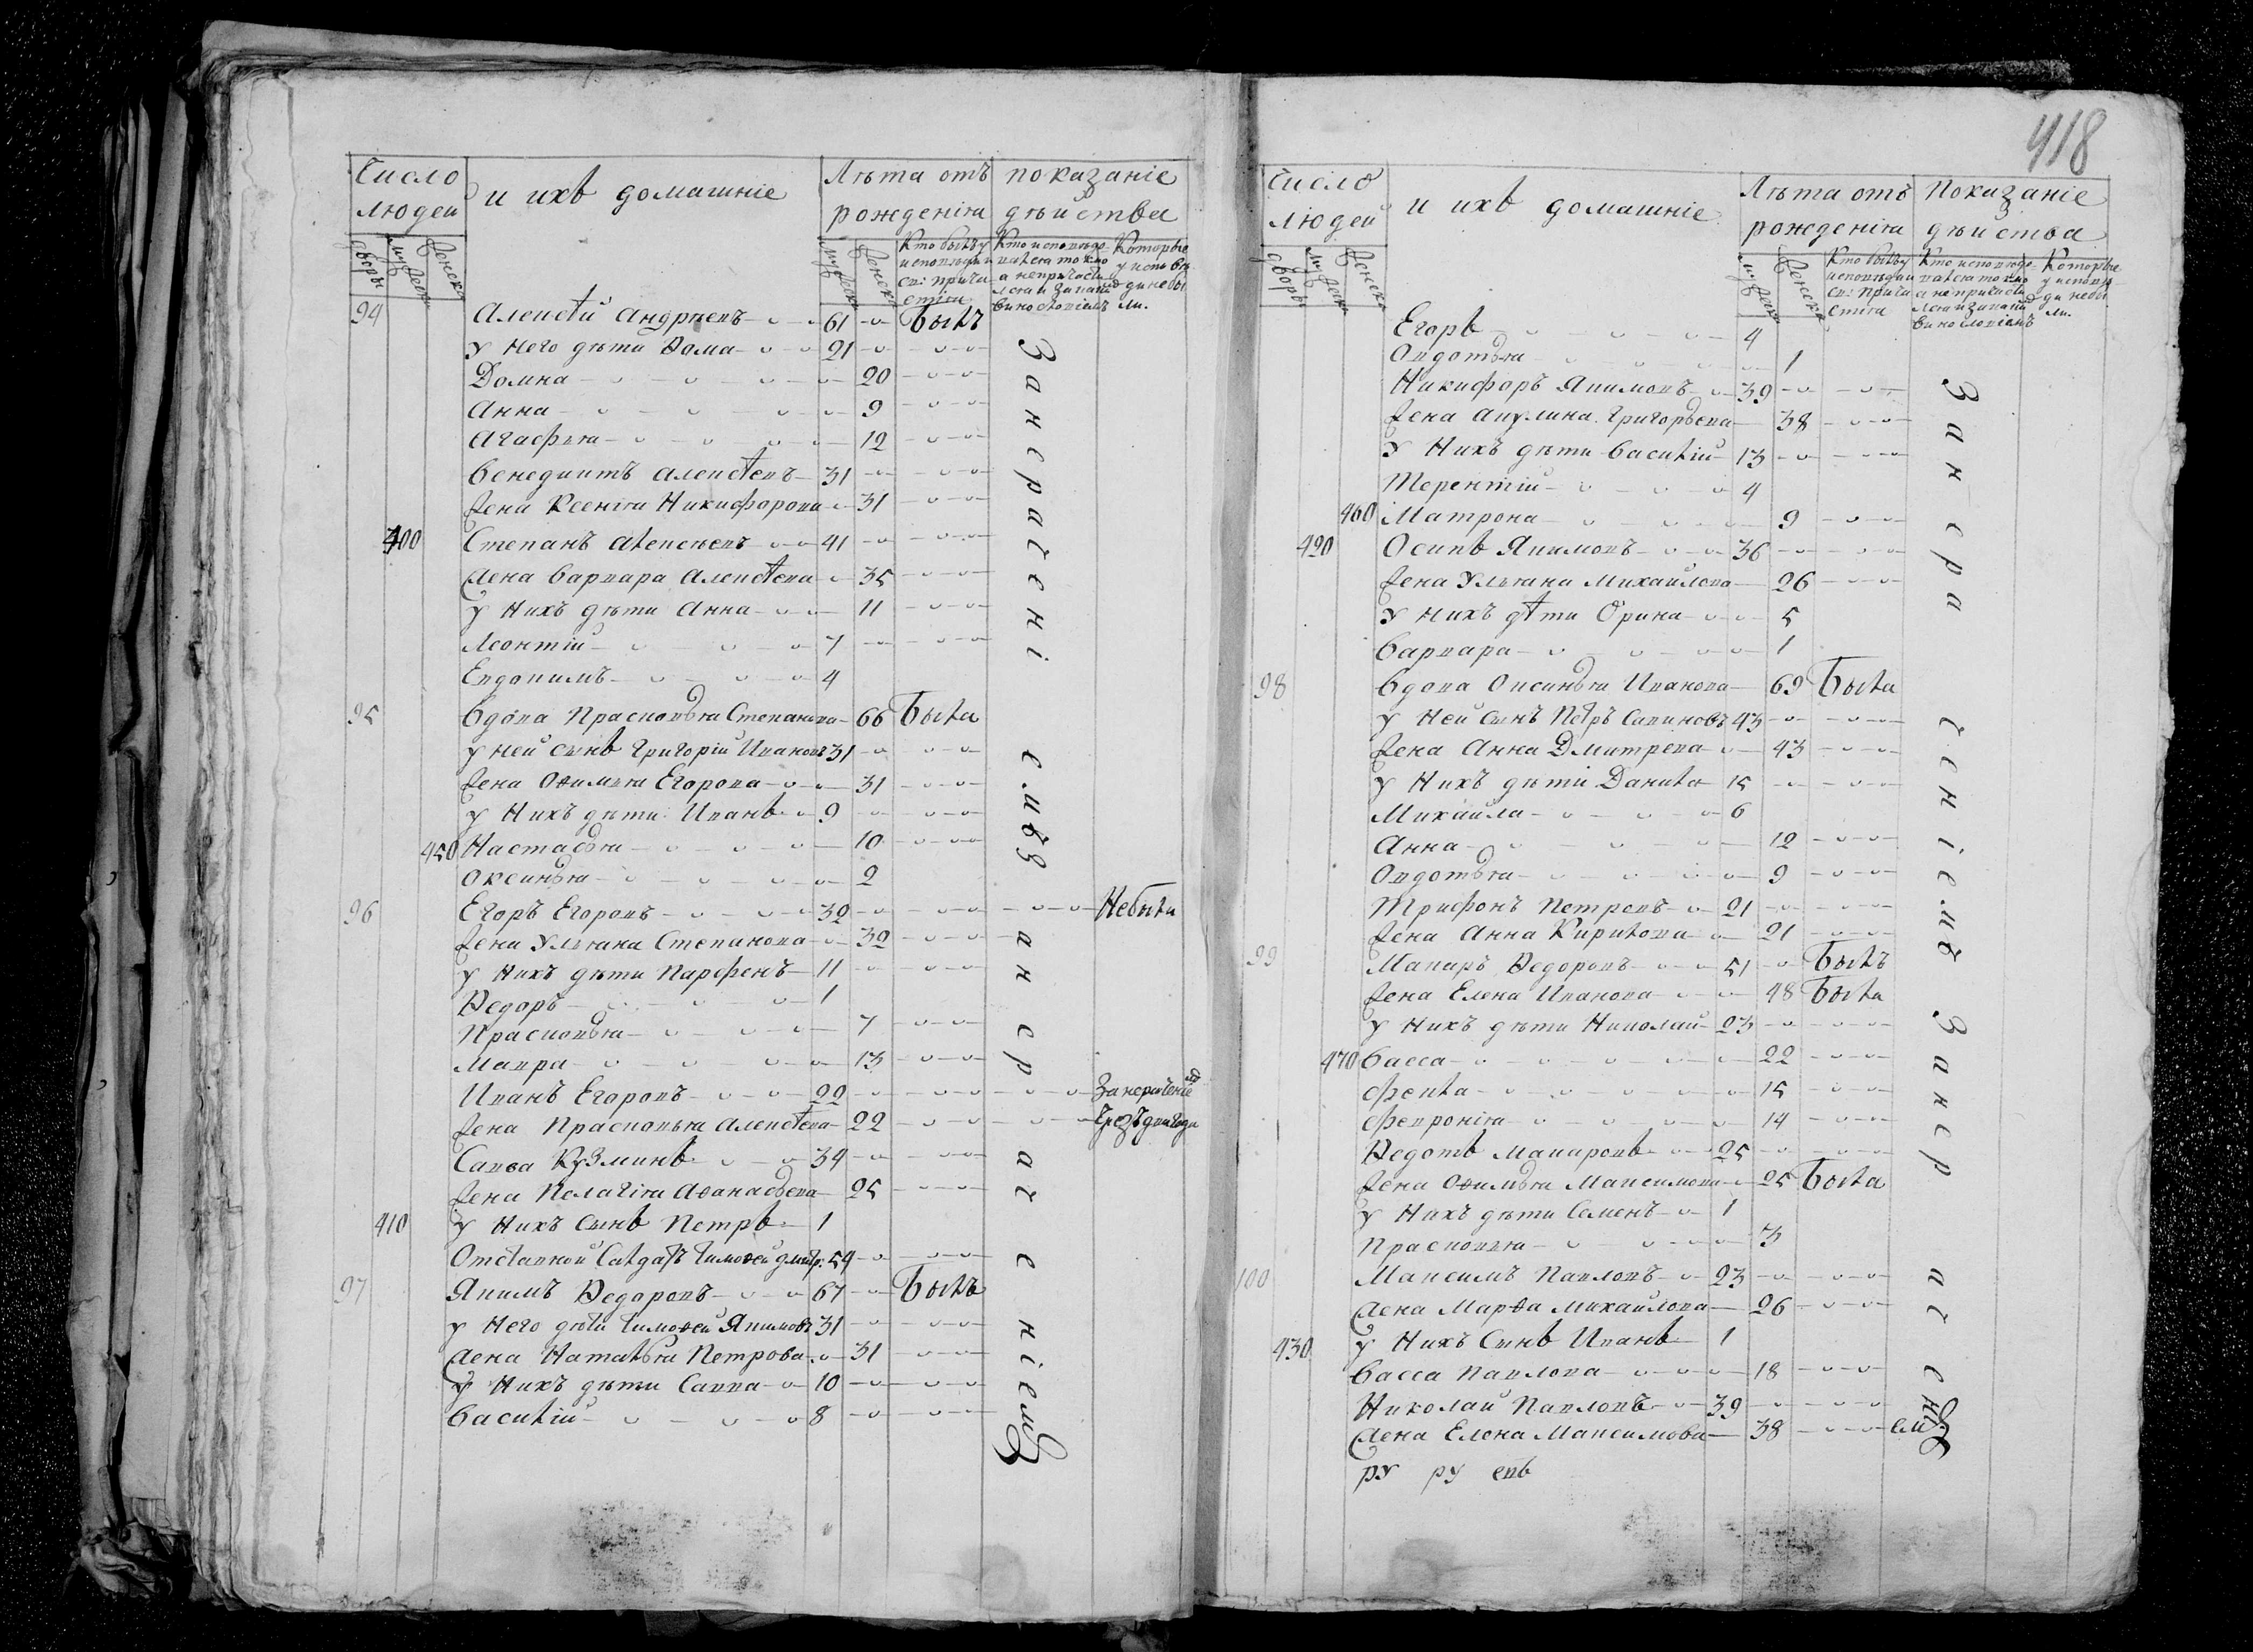 Число людей
и ихъ домашніе
Лѣта отъ рожденія
показаніе дѣйства
дворы
мужеска
женска
мужеска
женска
Кто былъ у исповѣди и св: причастія
Кто исповѣдовался токмо а не причастился и за каким виносло­віемъ
Которые у исповѣди небыли.
94 Алексѣй Андрѣевъ 61 Былъ
у Него дѣти Ѳома 21
Домна 20
Анна 9
Агафья 12
Венедиктъ Алексѣевъ 31
жена Ксенія Никифорова 31
400 Степанъ Алексѣевъ 41
жена Варвара Алексѣева 35
у Нихъ дѣти Анна 11
Леонтій 7
Евдокимъ 4
95 Вдова Прасковья Степанова 66 Была
у ней сынъ Григорій Ивановъ 31
жена Офимья Егорова 31
у Нихъ дѣти Иванъ 9
450 Настасья 10
Оксинья 2
96 Егоръ Егоровъ 32 Небыли
жена Ульяна Степанова 32
у Нихъ дѣти Парфенъ 11
Ѳедоръ 1
Прасковья 7
Мавра 13
Иванъ Егоровъ 22 За нераченіемъ
жена Прасковья Алексѣева 22 Чрезъ два года
Савва Кузминъ 34
жена Пелагія Аѳанасьева 25
410 у Нихъ Сынъ Петръ 1
Отставной Салдатъ Тимоѳей Дмитр. 54
97 Якимъ Ѳедоровъ 67 Былъ
у Него дѣти Тимоѳей Якимовъ 31
жена Наталья Петрова 31
у Нихъ дѣти Савва 10
Василій 8
За нераченіемъ За нераченіемъ
418
Число людей
и ихъ домашніе
Лѣта отъ рожденія
Показаніе дѣйства
дворы
мужеска
женска
мужеска
женска
Кто былъ у исповѣди и св: причастія
Кто исповѣдовался токмо а не причастился и за каким винословіемъ
Которые у исповѣди небыли.
Егоръ 4
Овдотья 1
Никифоръ Якимовъ 39
жена Акулина Григорьева 38
у Нихъ дѣти Василій 13
Терентій 4
460 Матрона 9
420 Осипъ Якимовъ 36
жена Ульяна Михайлова 26
у нихъ дѣти Орина 5
Варвара 1
98 Вдова Оксинья Иванова 69 Была
у Ней сынъ Петръ Савиновъ 43
жена Анна Дмитрева 43
у Нихъ дѣти Данила 15
Михайла 6
Анна 12
Овдотья 9
Трифонъ Петровъ 21
жена Анна Кирилова 21
99 Макаръ Ѳедоровъ 51 Былъ
жена Елена Иванова 48 Была
у Нихъ дѣти Николай 23
470 Васса 22
Фекла 15
Феврониія 14
Ѳедотъ Макаровъ 25
жена Офимья Максимова 25 Была
у Нихъ дѣти Семенъ 1
Прасковья 3
100 Максимъ Павловъ 23
жена Марѳа Михайлова 26
430 у Нихъ Сынъ Иванъ 1
Васса Павлова 18
Николай Павловъ 39
жена Елена Максимова 38
За нераченіемъ За нераченіемъ
ру ру евъ